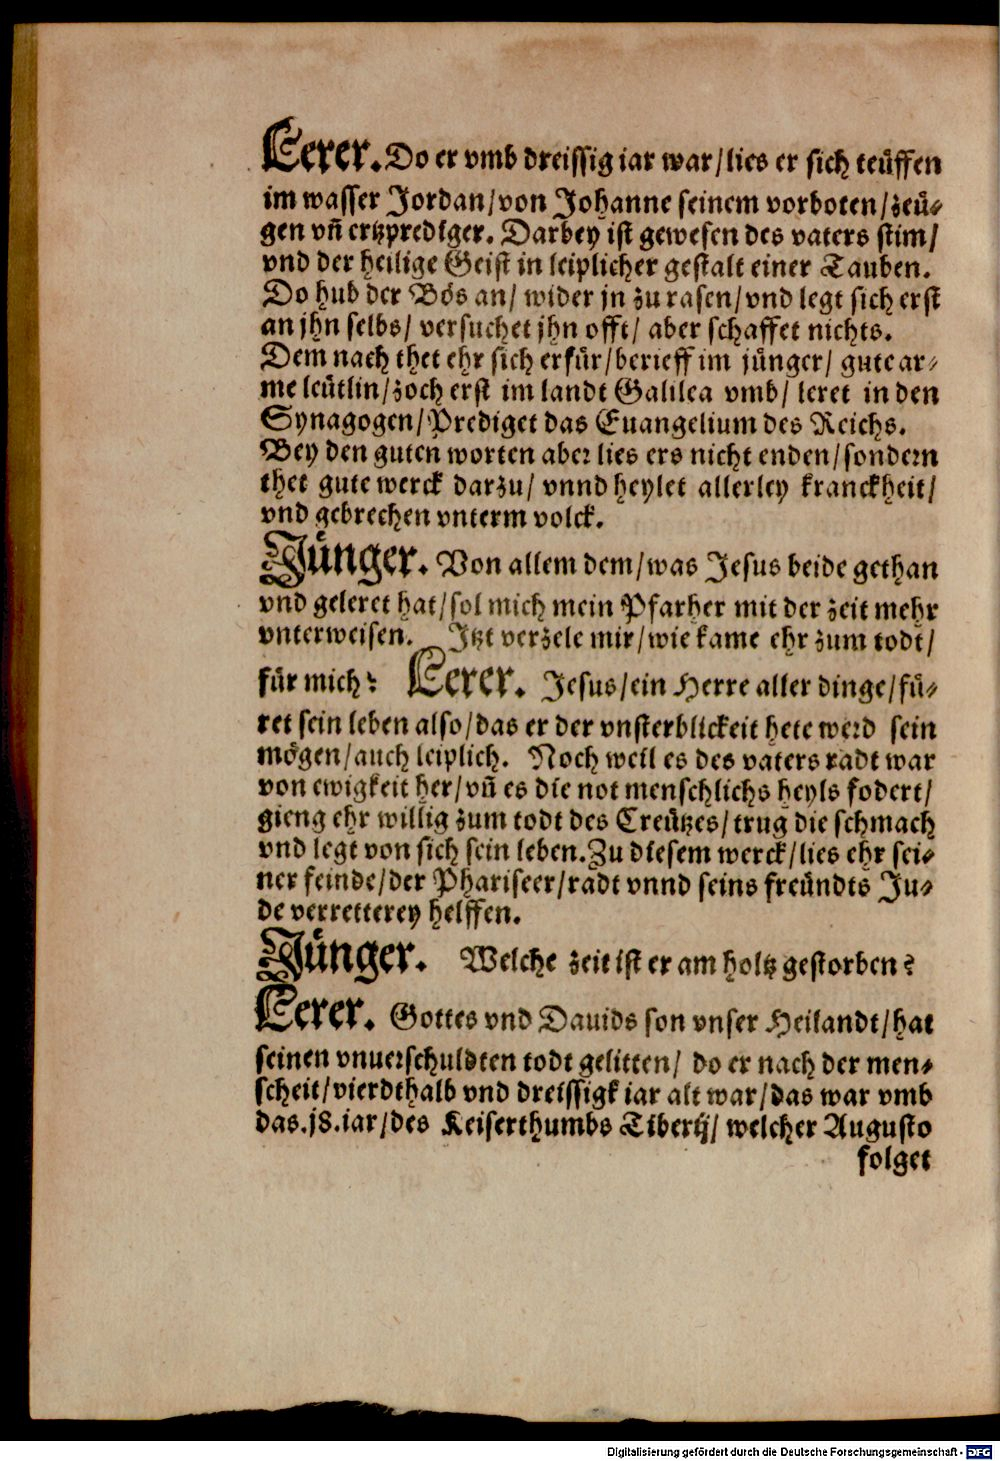 Lerer. Do er vmb dreissig iar war/lies er sich teüffen
im wasser Jordan/von Johanne seinem vorboten/zeü⸗
gen vñ ertzprediger. Darbey ist gewesen des vaters stim/
vnd der heilige Geist in leiplicher gestalt einer Tauben.
Do hub der Bös an/ wider jn zu rasen/vnd legt sich erst
an jhn selbs/ versuchet jhn offt/ aber schaffet nichts.
Dem nach thet ehr sich erfür/berieff im jünger/ gute ar⸗
me leütlin/zoch erst im landt Galilea vmb/ leret in den
Synagogen/Prediget das Euangelium des Reichs.
Bey den guten worten aber lies ers nicht enden/sondern
thet gute werck darzu/ vnnd heylet allerley kranckheit/
vnd gebrechen vnterm volck.
Jünger. Von allem dem/was Jesus beide gethan
vnd geleret hat/sol mich mein Pfarher mit der zeit mehr
vnterweisen. Jtzt verzele mir/wie kame ehr zum todt/
für mich? Lerer. Jesus/ein Herre aller dinge/fü⸗
ret sein leben also/das er der vnsterblickeit hete werd sein
mögen/auch leiplich. Noch weil es des vaters radt war
von ewigkeit her/vñ es die not menschlichs heyls fodert/
gieng ehr willig zum todt des Creützes/trug die schmach
vnd legt von sich sein leben. Zu diesem werck/lies ehr sei⸗
ner feinde/der Phariseer/radt vnnd seins freündts Ju⸗
de verretterey helffen.
Jünger. Welche zeit ist er am holtz gestorben?
Lerer. Gottes vnd Dauids son vnser Heilandt/hat
seinen vnuerschuldten todt gelitten/ do er nach der men⸗
scheit/vierdthalb vnd dreissigk iar alt war/das war vmb
das.j8.iar/des Keiserthumbs Tiberij/ welcher Augusto
folget
Digitalisierung gefördert durch die Deutsche Forschungsgemeinschaft - DFG